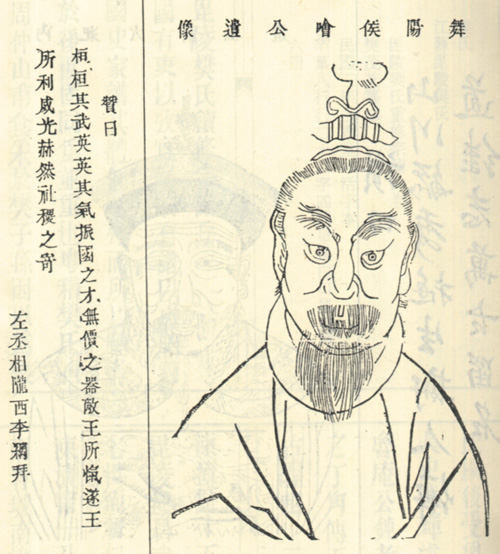 舞陽侯噲公遺像
贊曰
桓桓其武英英其氣振國之才無價之器敵王所愾遂王
所利威光赫然社稷之寄
左丞相隴西李綱拜